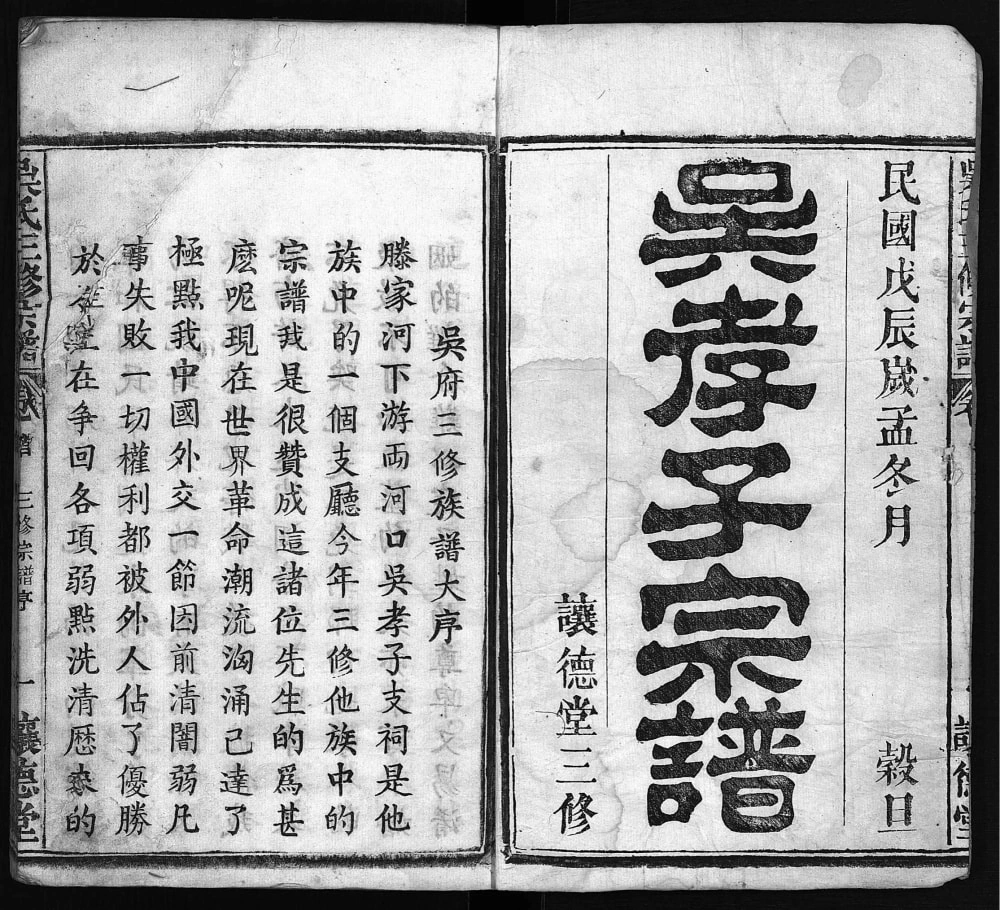 吳氏三修宗譜
讓德堂
民國戊辰歲孟冬月 穀旦
吳孝子宗譜
讓德堂三修
吳府三修族譜大序
滕家河下游両河口吳孝子支祠是他
族中的一個支廳今年三修他族中的
宗譜我是很贊成這諸位先生的爲甚
麽呢現在世界革命潮流汹涌己達了
極點我中國外交一節因前清闇弱凡
事失敗一切權利都被外人佔了優勝
於在爭回各項弱點洗清厯來的
吳氏三修宗譜 首 三修宗譜序 一 讓德堂